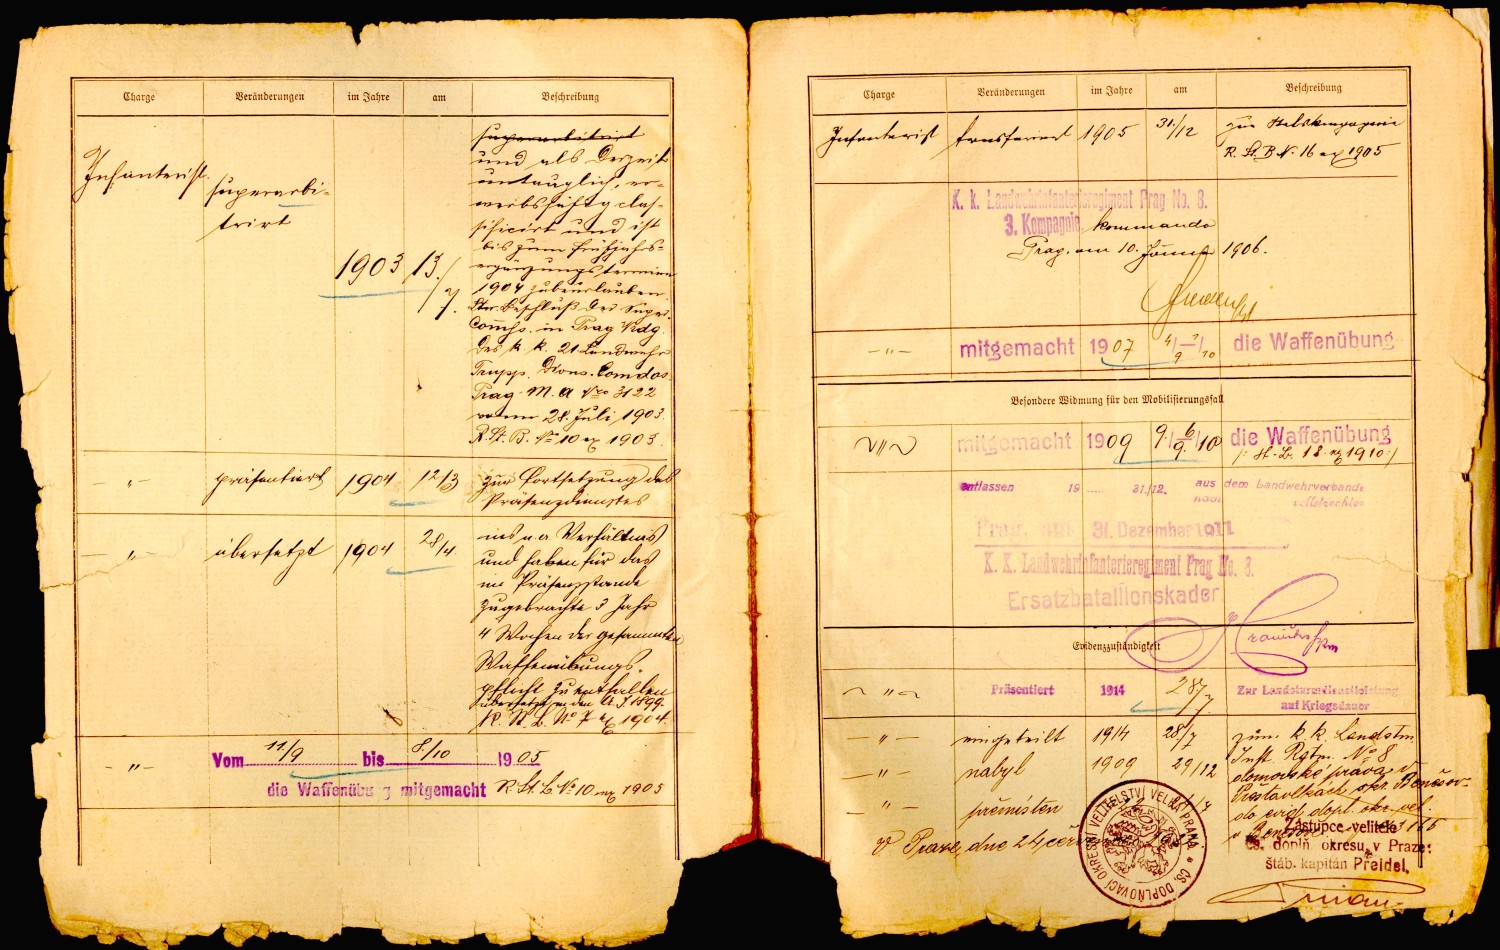 Charge Veränderungen im Jahre am Beschreibung
superarbitrirt
und als Derzeit
untauglich, er-
werbsfähig clas-
sificirt und ist
bis zum Frühjahrs-
ergänzungstermine
1904 zu beurlauben.
Infanterist superarbi-
trirt
1903 13./7.
Beschluß der Super.
Comss. in Prag
des k. k. 21 Landwehr
Trupp. Divns. Comdos
Prag M. A. No 3122
vom 28. Juli 1903.
R. St. B. No 10 ex 1903.
-"- präsentiert 1904 12/3 zur Fortsetzung des
Präsenzdienstes
-"- übersetzt 1904 28/4. ins n. a. Verhältnis
und haben für das
im Präsenzstande
zugebrachte 3 Jahr
4 Wochen der gesammten
Waffenübungs-
pflicht zu entfallen
1899.
No 7 ex 1904.
-"- Vom 11/9 bis 8./10 1905
die Waffenübung mitgemacht R. St. B. No 10 ex 1905
Charge Veränderungen im Jahre am Beschreibung
Infanterist transferiert 1905 31./12 zur Stabskompagnie
R. St. B. N. 16 ex 1905
K. k. Landwehrinfanterieregiment Prag No. 8.
3. Kompagnie kommando
Prag, am 10. Jänner 1906.
-"- mitgemacht 1907 4/9 - 1/10 die Waffenübung
Besondere Widmung für den Mobilisierungsfall
-"- mitgemacht 1909 die Waffenübung
entlassen 19 31./12. aus dem Landwehrverbande
nach vollstreckter
Prag, am 31. Dezember 1911
K. K. Landwehrinfanterieregiment Prag No. 8.
Ersatzbataillonskader
Evidenzzuständigkeit
-"- Präsentiert 1914 28/7 Zur Landsturmdienstleistung
auf Kriegsdauer
-"- eingeteilt 1914 28/7 zum k. k. Landstm.
Inft. Rgtm. No 8
-"- nabyl 1909 29/12 domovské právo v
Přestavlkách okr. Benešov
-"- přemístěn do evid. dopl. okr. vel.
v Benešově
v Praze, dne 24. června
OKRESNÍ VELITELSTVÍ VELKÁ PRAHA * ČS. DOPLŇOVACÍ
Zástupce velitele
čs. doplň okresu v Praze:
štáb. kapitán Preidel.